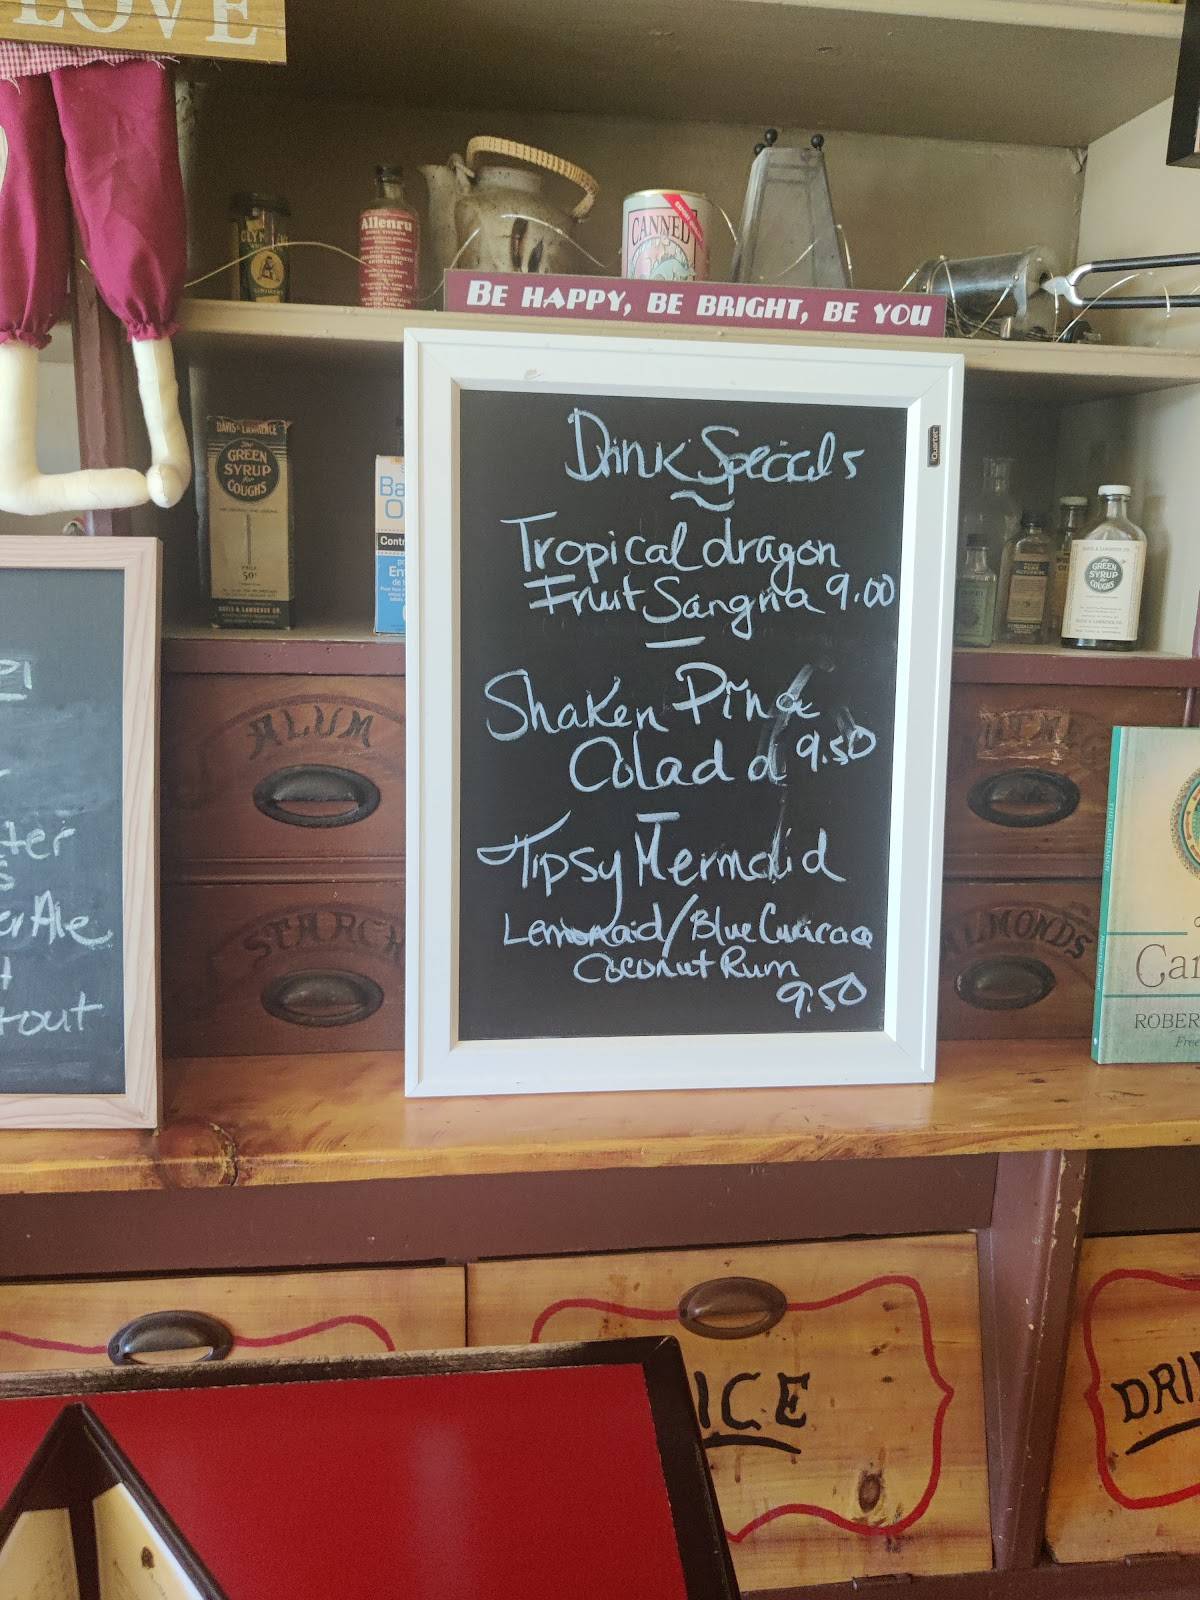 LOVE
Allenru
CANNED
BE HAPPY, BE BRIGHT, BE YOU
DAVIS & LAWRENCE
The
GREEN
SYRUP
for
COUGHS
50¢
Quartet
Drink Specials
Tropical dragon
Fruit Sangria 9.00
Shaken Pina
Colada 9.50
Tipsy Mermaid
Lemonaid/Blue Curacao
Coconut Rum
9.50
GREEN
SYRUP
for
COUGHS
ALUM
STARCH
NUTMEG
ALMONDS
Ale
tout
Car
ROBER
Free
ICE
DRI